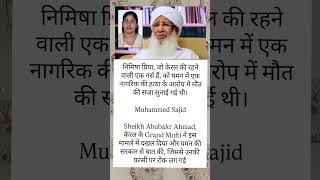 निमिषा प्रिया, जो केरल की रहने
वाली एक नर्स हैं, को यमन में एक
नागरिक की हत्या के आरोप में मौत
की सजा सुनाई गई थी।
Muhammed Sajid
Sheikh Abubakr Ahmad,
केरल के Grand Mufti ने इस
मामले में दखल दिया और यमन की
सरकार से बात की, जिससे उनकी
फांसी पर रोक लग गई